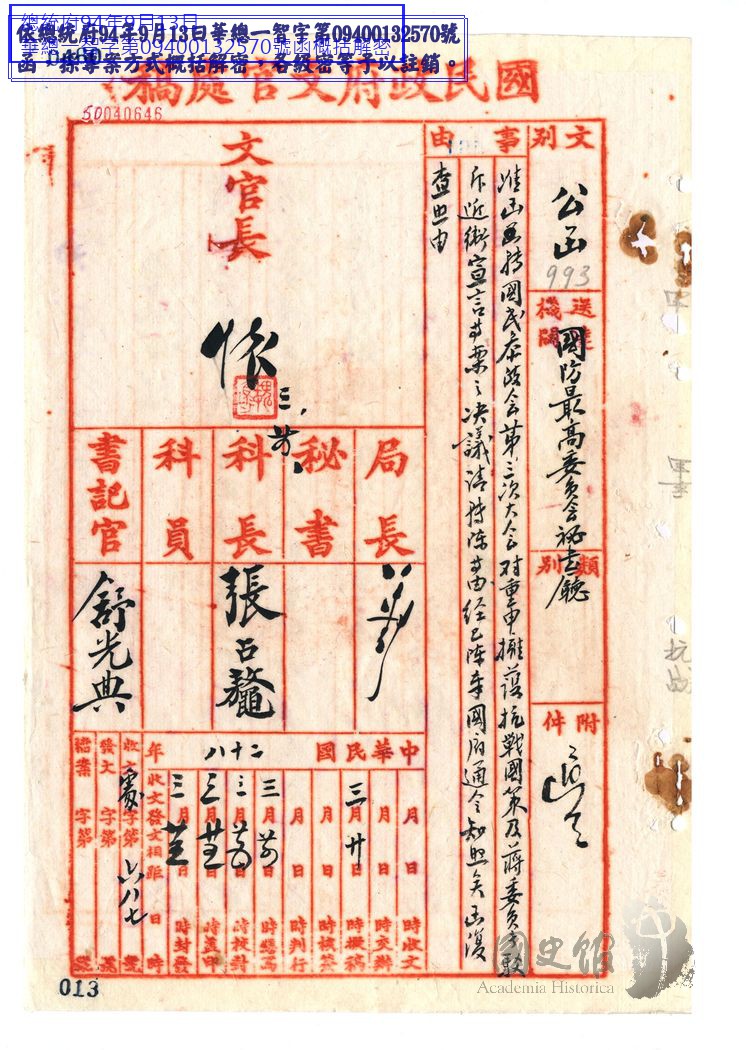 總統府94年9月13日
華總一智字第09400132570號函概括解密
依總統府94年9月13日華總一智字第09400132570號
函,採專案方式概括解密,各級密等予以註銷。
國民政府文官處稿
50040646
文別
公函
993
送達機關
國防最高委員會祕書廳
類別
附件
事由
准函為轉國民參政會第三次大會對重申擁護抗戰國策及蔣委員長駁
斥近衛宣言等案之決議請轉陳等由經已陳奉國府通令知照矣函復
查照由
文官長
懷
局長
秘書
科長
張占鰲
科員
書記官
舒光典
中華民國二十八年
月 日 時收文
月 日 時交辦
三月廿日 時擬稿
月 日 時核簽
月 日 時判行
三月 日 時繕寫
三月 日 時校對
三月 日 時蓋印
三月 日 時封發
收文發文相距 日 時
收文 字第六八七號
發文 字第 號
檔案 字第 號
抗战
013
國史館
Academia Historica